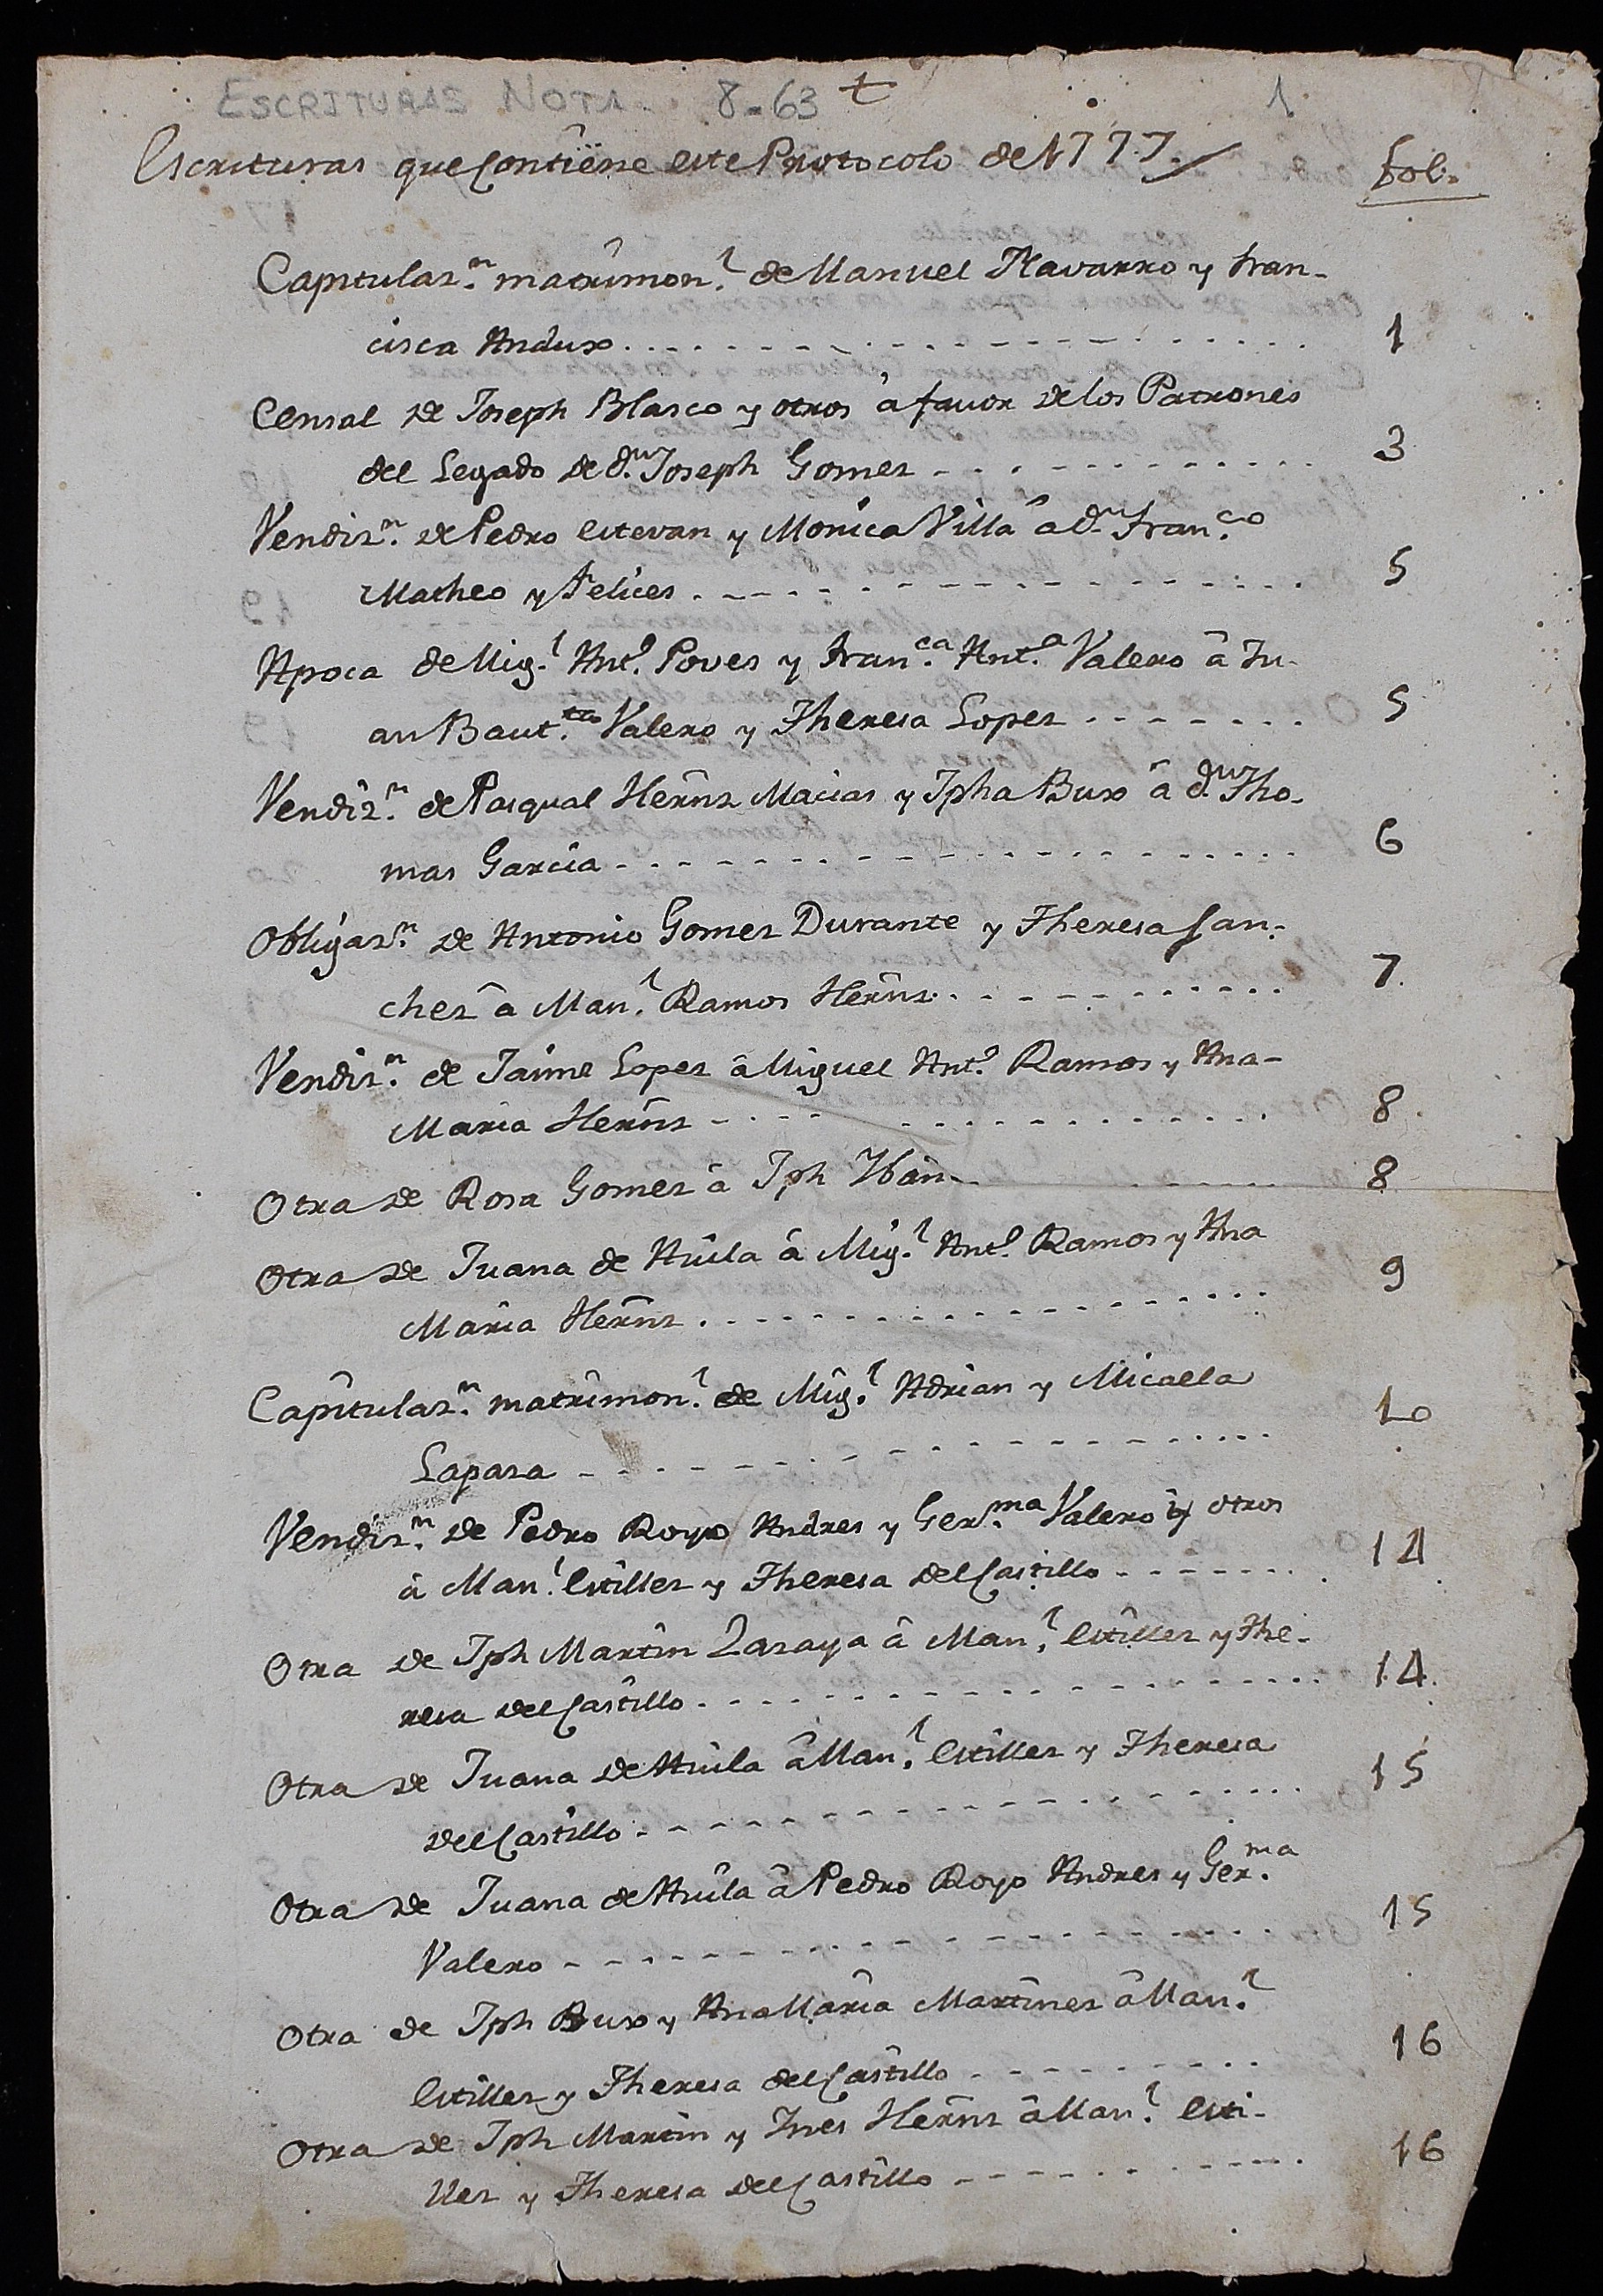 ESCRITURAS NOTA. 8-63 t 1
Escrituras que Contiene este Protocolo de 1777 fol.
Capitulaz.n matrimon.l de Manuel Navarro y Fran-
cisca Andux . . . . . 1
Censal de Joseph Blasco y otros â favor de los Patrones
del Legado de d.n Joseph Gomez - . . . . 3
Vendiz.n de Pedro Estevan y Monica Villa â d.n Fran.co
Matheo y Felices . . . . . 5
Apoca de Mig.l Ant.o Poves y Fran.ca Ant.a Valero â Ju-
an Baut.ta Valero y Theresa Lopez . . . . . 5
Vendiz.n de Pasqual Herñz Macias y Jpha Bux â d.n Tho-
mas Garcia . . . . . 6
Obligaz.n de Antonio Gomez Durante y Theresa San-
chez â Man.l Ramos Herñz . . . . . 7
Vendiz.n de Jaime Lopez â Miguel Ant.o Ramos y Ana-
Maria Herñz . . . . . 8
Otra de Rosa Gomez â Jph Ybañ . . . . . 8
Otra de Juana de Auila â Mig.l Ant.o Ramos y Ana
Maria Herñz . . . . . 9
Capitulaz.n matrimon.l de Mig.l Adrian y Micaela
Lapaza . . . . . 10
Vendiz.n de Pedro Royo Andres y Ger.ma Valero y otros
â Man.l Estillez y Theresa del Castillo . . . . . 14
Otra de Jph Martin Lazaya â Man.l Estillez y The-
resa del Castillo . . . . . 14
Otra de Juana de Auila â Man.l Estillez y Theresa
del Castillo . . . . . 15
Otra de Juana de Auila â Pedro Royo Andres y Ger.ma
Valero . . . . . 15
Otra de Jph Bux y Ana Maria Martinez â Man.l
Estillez y Theresa del Castillo . . . . . 16
Otra de Jph Martin y Ines Herñz â Man.l Esti-
llez y Theresa del Castillo . . . . . 16